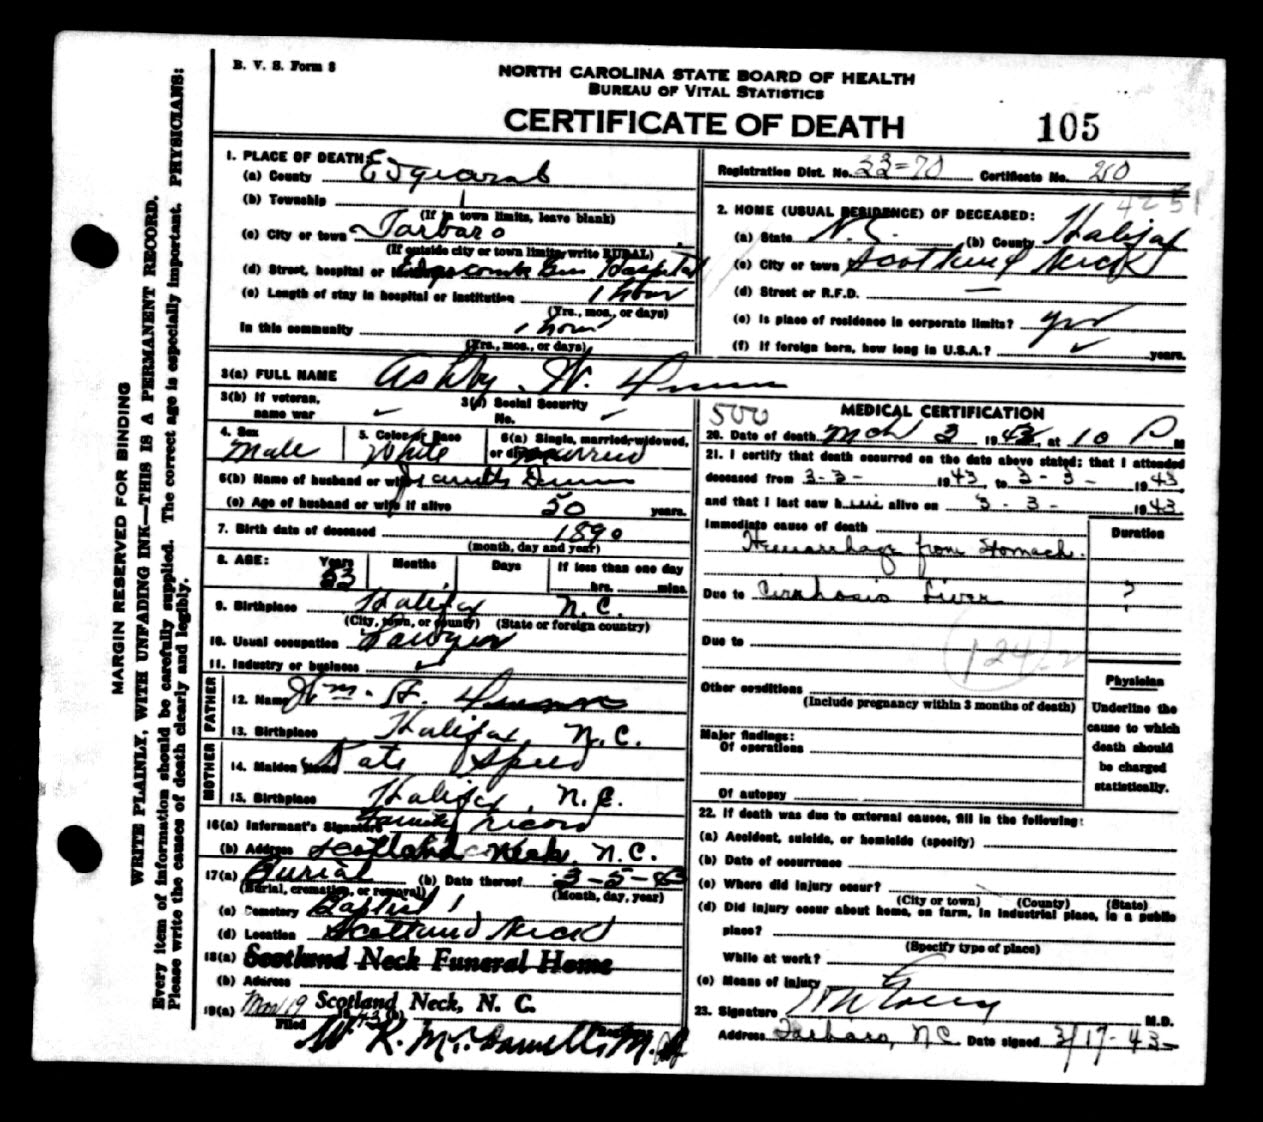 B. V. S. Form 8
NORTH CAROLINA STATE BOARD OF HEALTH
BUREAU OF VITAL STATISTICS
CERTIFICATE OF DEATH
105
MARGIN RESERVED FOR BINDING
WRITE PLAINLY, WITH UNFADING INK—THIS IS A PERMANENT RECORD.
Every item of information should be carefully supplied. The correct age is especially important. PHYSICIANS:
Please write the causes of death clearly and legibly.
1. PLACE OF DEATH:
(a) County
(b) Township
(If in town limits, leave blank)
(c) City or town Tarboro
(If outside city or town limits, write RURAL)
(d) Street, hospital or Edgecombe Gen Hospital
(e) Length of stay in hospital or institution 1 hour
(Yrs., mos., or days)
In this community 1 hour
(Yrs., mos., or days)
Registration Dist. No. 33-70 Certificate No. 20
4251
2. HOME (USUAL RESIDENCE) OF DECEASED:
(a) State N.C. (b) County Halifax
(c) City or town Scotland Neck
(d) Street or R.F.D. —
(e) Is place of residence in corporate limits? yes
(f) If foreign born, how long in U.S.A.? ✓ years.
3(a) FULL NAME Ashby W. Dunn
3(b) If veteran, name war ✓
3(c) Social Security No. ✓
4. Sex Male
5. Color or Race White
6(a) Single, married, widowed, or divorced married
6(b) Name of husband or wife Dunn
(c) Age of husband or wife if alive 50 years.
7. Birth date of deceased 1890
(month, day and year)
8. AGE: Years 53 Months Days If less than one day
hrs. mins.
9. Birthplace Halifax N.C.
(City, town, or county) (State or foreign country)
10. Usual occupation Lawyer
11. Industry or business ✓
FATHER
12. Name Wm. A. Dunn
13. Birthplace Halifax, N.C.
MOTHER
14. Maiden Name Kate Speed
15. Birthplace Halifax, N.C.
16(a) Informant's Signature Family record
(b) Address Scotland Neck, N.C.
17(a) Burial (b) Date thereof 3-5-43
(Burial, cremation, or removal) (Month, day, year)
(c) Cemetery Baptist
(d) Location Scotland Neck
18(a) Scotland Neck Funeral Home
(b) Address Scotland Neck, N. C.
19(a) Mar 19 43 (b)
Filed
500
MEDICAL CERTIFICATION
20. Date of death Mch 3 1943, at 10 P M
21. I certify that death occurred on the date above stated; that I attended
deceased from 3-3- 1943, to 3-3- 1943
and that I last saw him alive on 3-3- 1943
Immediate cause of death
Duration
Hemorrhage from Stomach.
Due to Cirrhosis Liver ?
Due to
124
Other conditions
(Include pregnancy within 3 months of death)
Major findings:
Of operations
Of autopsy
Physician
Underline the
cause to which
death should
be charged
statistically.
22. If death was due to external causes, fill in the following:
(a) Accident, suicide, or homicide (specify)
(b) Date of occurrence
(c) Where did injury occur?
(City or town) (County) (State)
(d) Did injury occur about home, on farm, in industrial place, in a public
place?
(Specify type of place)
While at work?
(e) Means of injury
23. Signature M.D.
Address Tarboro, N.C. Date signed 3/17-43-